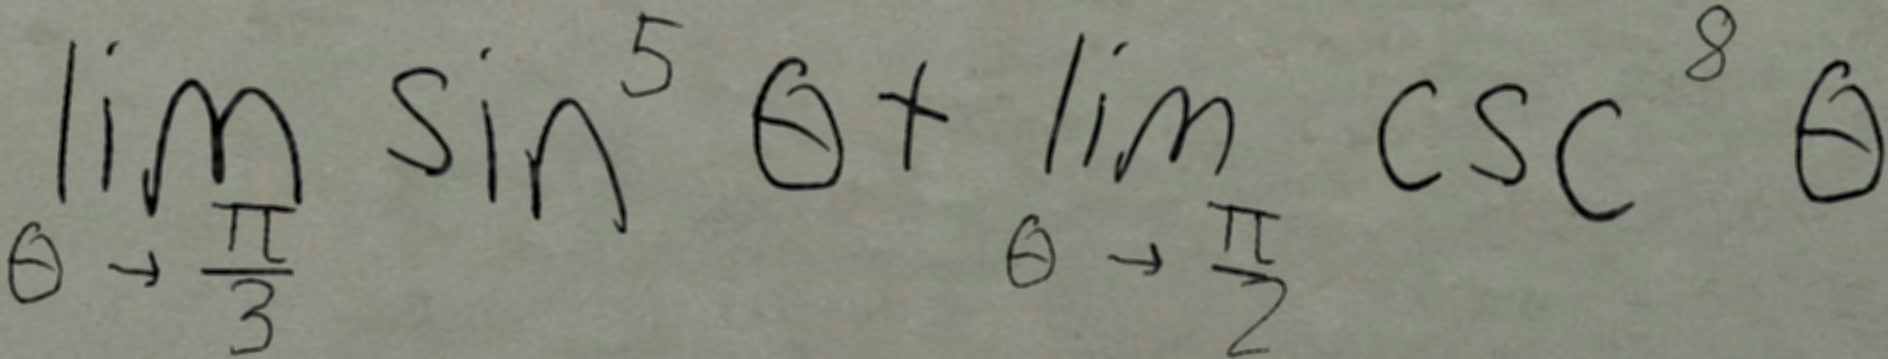 \lim_{\theta \to \frac{\pi}{3}} \sin^5 \theta + \lim_{\theta \to \frac{\pi}{2}} \csc^8 \theta